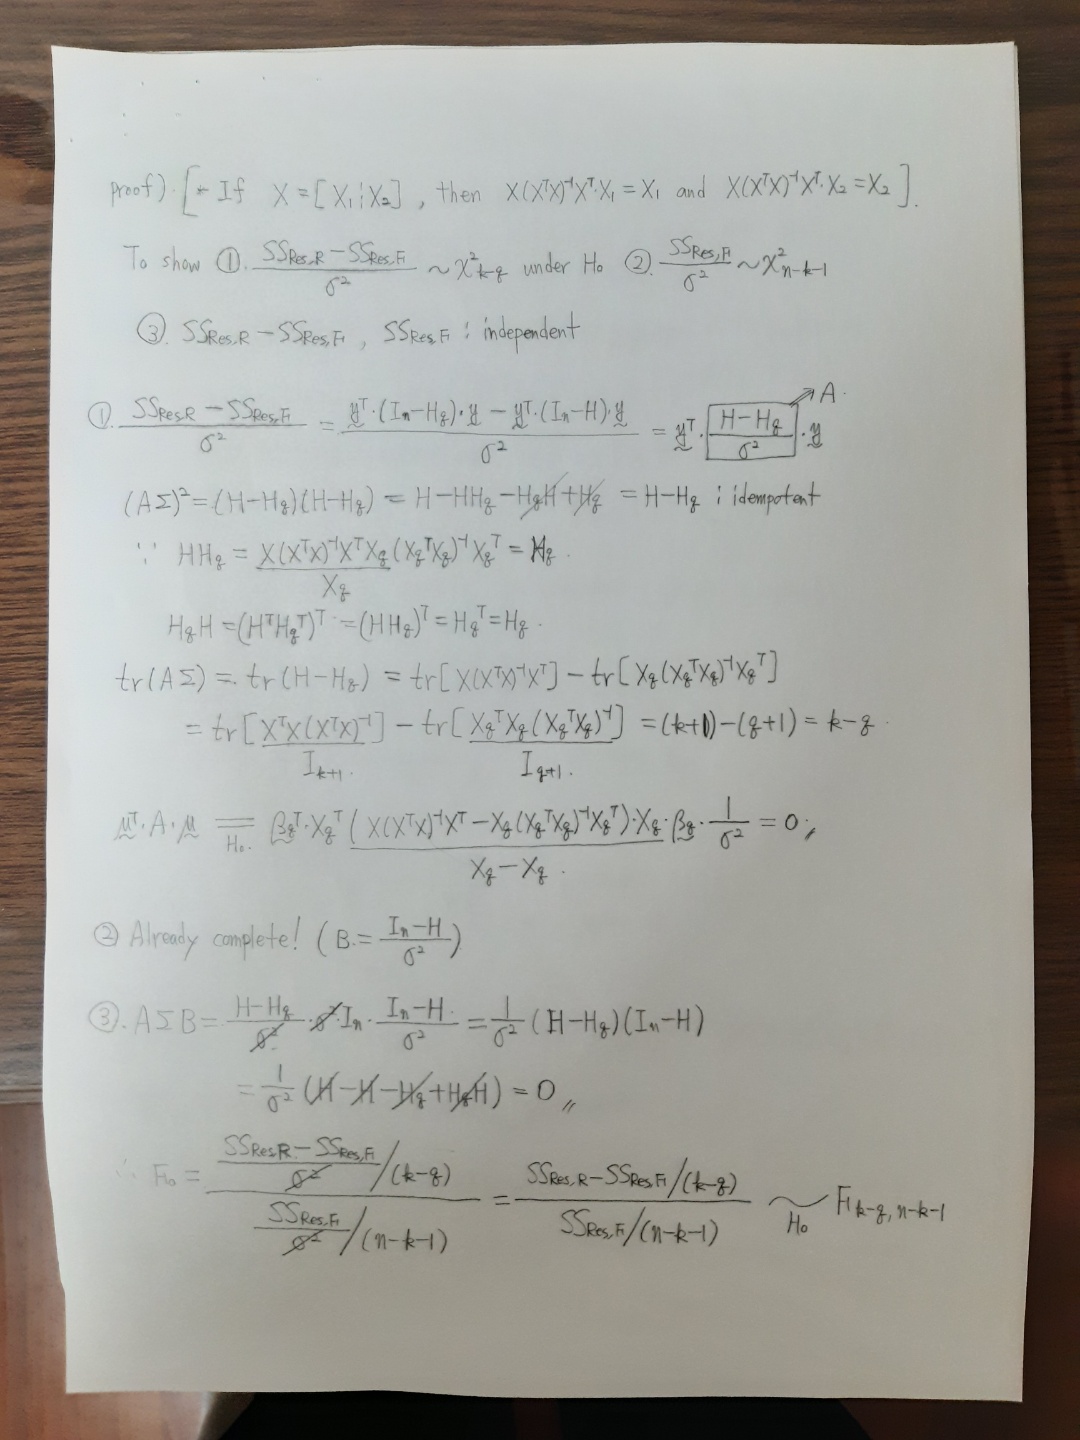 proof) [* If X=[X₁⋮X₂], then X(XᵀX)⁻¹Xᵀ·X₁=X₁ and X(XᵀX)⁻¹Xᵀ·X₂=X₂].
To show ①. (SS_Res,R − SS_Res,F)/σ² ~ χ²_k-q under H₀ ②. SS_Res,F/σ² ~ χ²_n-k-1
③. SS_Res,R − SS_Res,F , SS_Res,F : independent
①. (SS_Res,R − SS_Res,F)/σ² = (yᵀ·(Iₙ−H_q)·y − yᵀ·(Iₙ−H)·y)/σ² = yᵀ·[(H−H_q)/σ²]·y → A.
(AΣ)²=(H−H_q)(H−H_q) = H−HH_q−H_qH+H_q = H−H_q ; idempotent
∵ HH_q = X(XᵀX)⁻¹XᵀX_q(X_qᵀX_q)⁻¹X_qᵀ = H_q.
X_q
H_qH =(HᵀH_qᵀ)ᵀ =(HH_q)ᵀ=H_qᵀ=H_q.
tr(AΣ) = tr(H−H_q) = tr[X(XᵀX)⁻¹Xᵀ] − tr[X_q(X_qᵀX_q)⁻¹X_qᵀ]
= tr[XᵀX(XᵀX)⁻¹] − tr[X_qᵀX_q(X_qᵀX_q)⁻¹] =(k+1)−(q+1) = k−q.
I_k+1. I_q+1.
μᵀ·A·μ =_H₀. β_qᵀ·X_qᵀ(X(XᵀX)⁻¹Xᵀ−X_q(X_qᵀX_q)⁻¹X_qᵀ)·X_q·β_q·1/σ² = 0,,
X_q−X_q.
② Already complete! (B.= (Iₙ−H)/σ²)
③. AΣB= (H−H_q)/σ²·σ²Iₙ·(Iₙ−H)/σ² = 1/σ²(H−H_q)(Iₙ−H)
= 1/σ²(H−H−H_q+H_qH) = 0,,
∴ F₀ = ((SS_Res,R − SS_Res,F)/σ²/(k−q))/(SS_Res,F/σ²/(n−k−1)) = (SS_Res,R−SS_Res,F/(k−q))/(SS_Res,F/(n−k−1)) ~_H₀ F_k-q, n-k-1